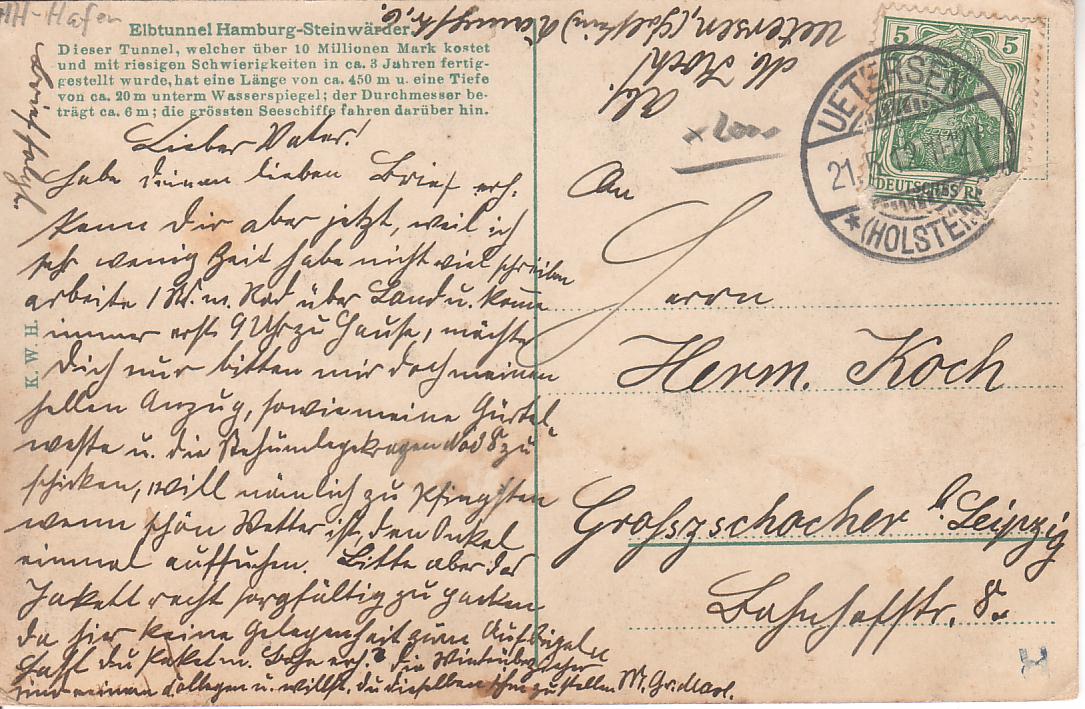 HH-Hafen
Elbtunnel Hamburg-Steinwärder
Dieser Tunnel, welcher über 10 Millionen Mark kostet
und mit riesigen Schwierigkeiten in ca. 3 Jahren fertig-
gestellt wurde, hat eine Länge von ca. 450 m u. eine Tiefe
von ca. 20 m unterm Wasserspiegel; der Durchmesser be-
trägt ca. 6 m; die grössten Seeschiffe fahren darüber hin.
Lieber Vater!
Habe deinen lieben Brief erh.
Kann Dir aber jetzt, weil ich
sehr wenig Zeit habe nicht viel schreiben
arbeite 1 St. m. Rad über Land u. komme
immer erst 9 Uhr zu Hause, möchte
Dich nur bitten mir doch meinen
hellen Anzug, sowie meine Gürtel-
weste u. die Stehumlegekragen No 8 zu
schicken, will nämlich zu Pfingsten
wenn schön Wetter ist, den Onkel
einmal aufsuchen. Bitte aber das
Jakett recht sorgfältig zu packen
da hier keine Gelegenheit zum Aufbügeln
Hast du Paket m. erh.? die
von einem Collegen u. willst du dieselben ihm zustellen M. Gr.
K. W. H.
Abs.
M. Koch
Uetersen, (Holstein)
5 5
DEUTSCHES R
UETERSEN
21. 5. 12. 11-12 V.
* (HOLSTEIN)
An
Herrn
Herm. Koch
Groszschocher b. Leipzig
Bahnhofstr. 8.
H